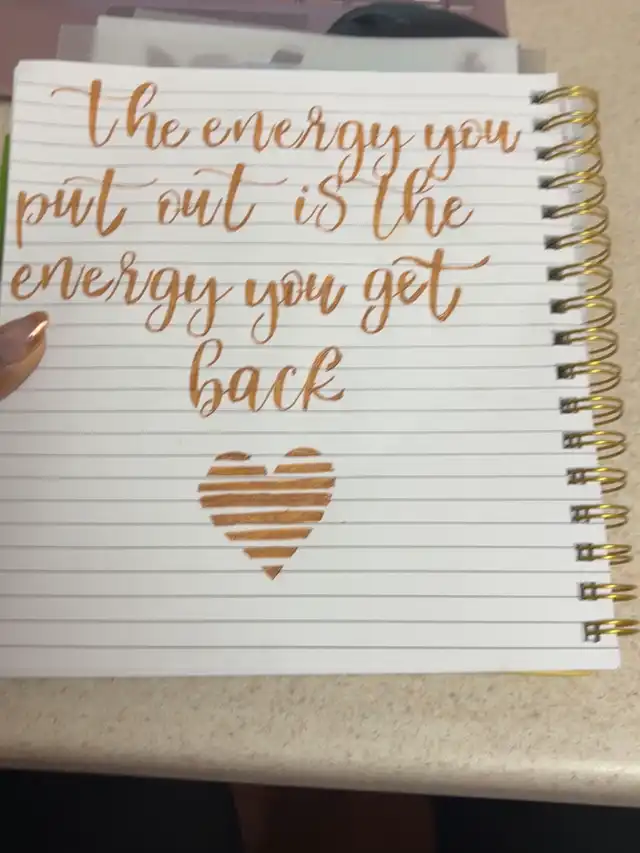 the energy you
put out is the
energy you get
back